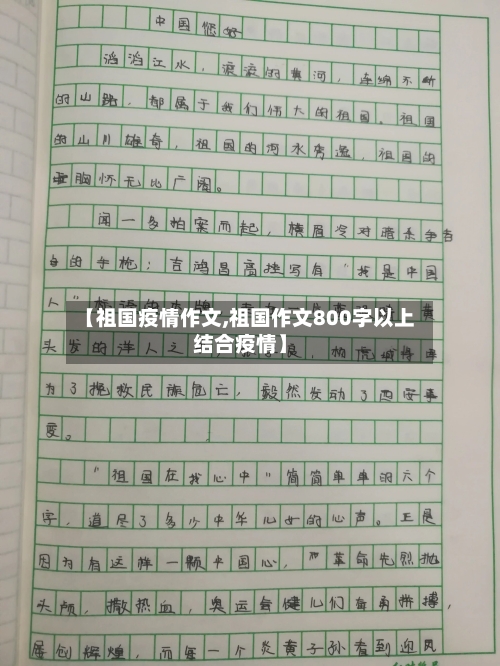 中国您好
滔滔江水，滚滚的黄河，连绵不断
的山路，都属于我们伟大的祖国。祖国
的山川雄奇，祖国的河水秀逸，祖国的
胸怀无比广阔。
闻一多拍案而起，横眉冷对暗杀争者
的手枪；吉鸿昌高挂写有"我是中国
人"
【祖国疫情作文,祖国作文800字以上
结合疫情】
头发的洋人之
为了挽救民族危亡，毅然发动了西安事
变。
"祖国在我心中"简简单单的六个
字，道尽了多少中华儿女的心声。正是
因为有这样一颗中国心，革命先烈抛
头颅，撒热血，奥运会健儿们奋勇拼搏，
屡创辉煌，而每一个炎黄子孙看到迎风